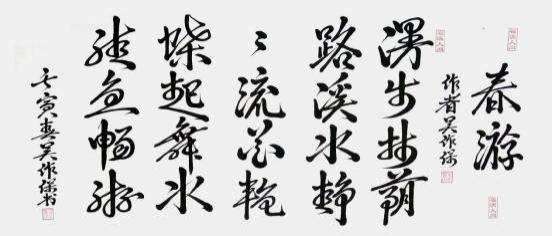 春游
作者吴作保
漫步林荫
路溪水静
〻流花艳
蝶起舞水
绿鱼畅游
壬寅春吴作保书